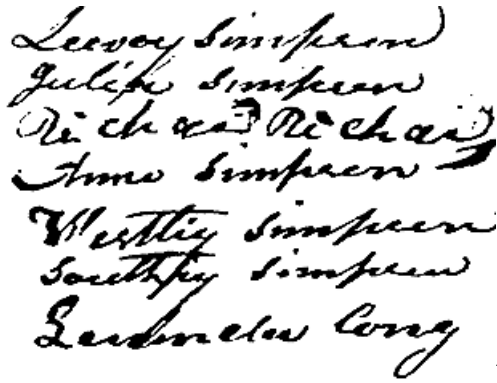 Leevoy Simpson
Julia Simpson
Richard Richard
Anne Simpson
Westley Simpson
Simpson
Long